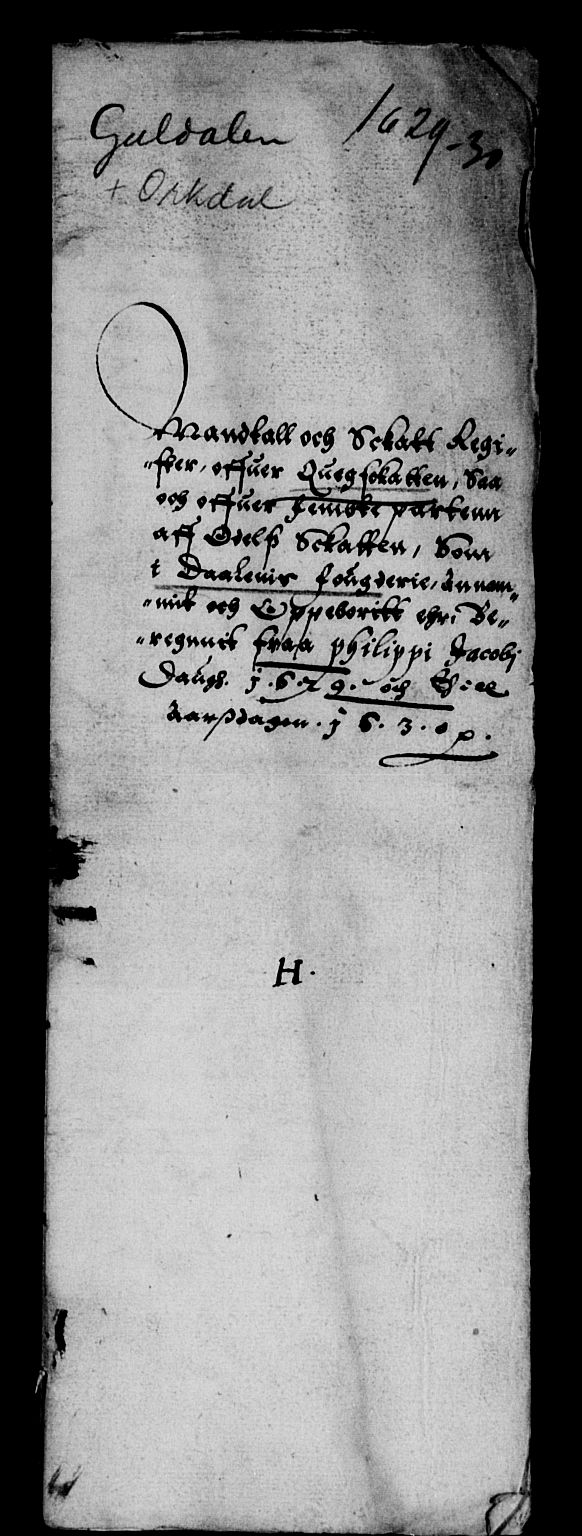 Guldalen 1629-30
+ Orkdal
Mandtall och Sckatt Regi„
„ster, offuer Quegsckatten, Saa
och offuer fembte partenn
aff Odelß Sckatten, Som
i Daalenis fougderie, Annam„
„mit och Oppeboritt ehr, Be„
„regnnit fraa philippi Jacobj
Daugh. j.6.29. och Thill
Aarßdagen. j 6.3.0 p.
H.